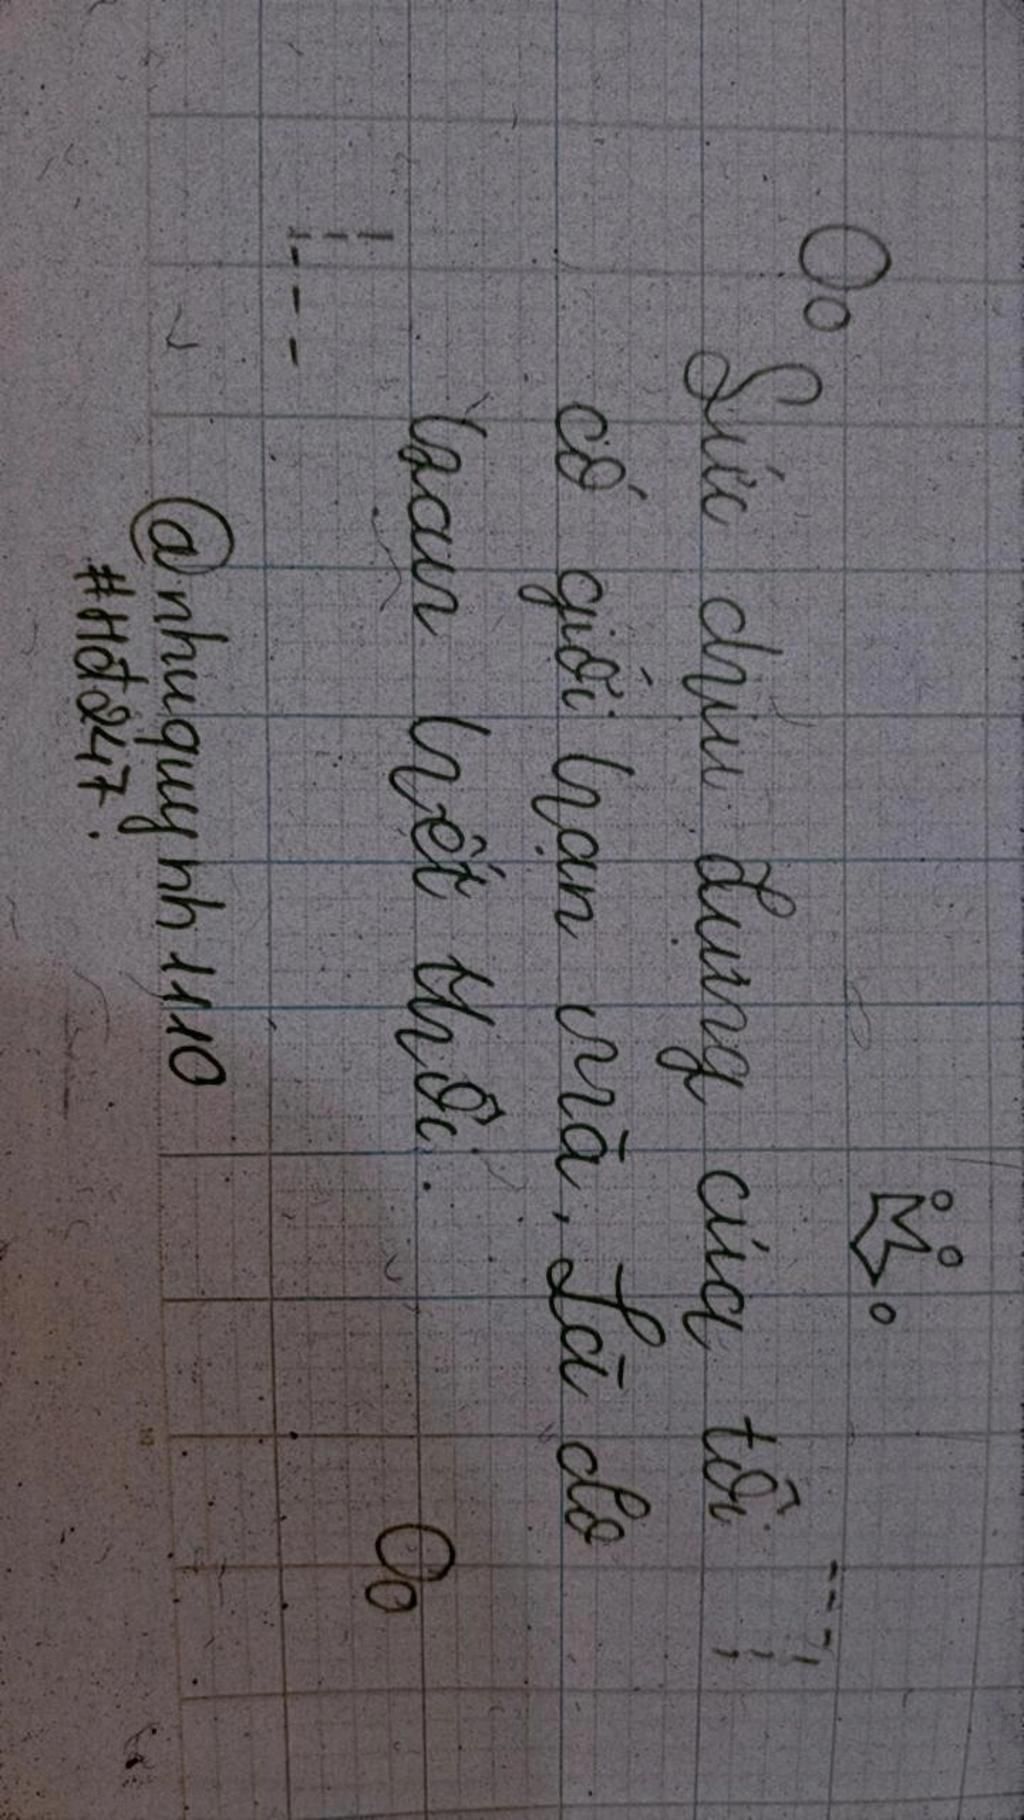 Sức chịu đựng của tôi
có giới hạn mà, Là do
bạn hết thôi.
@nhuquynh1110
#Hđ247.